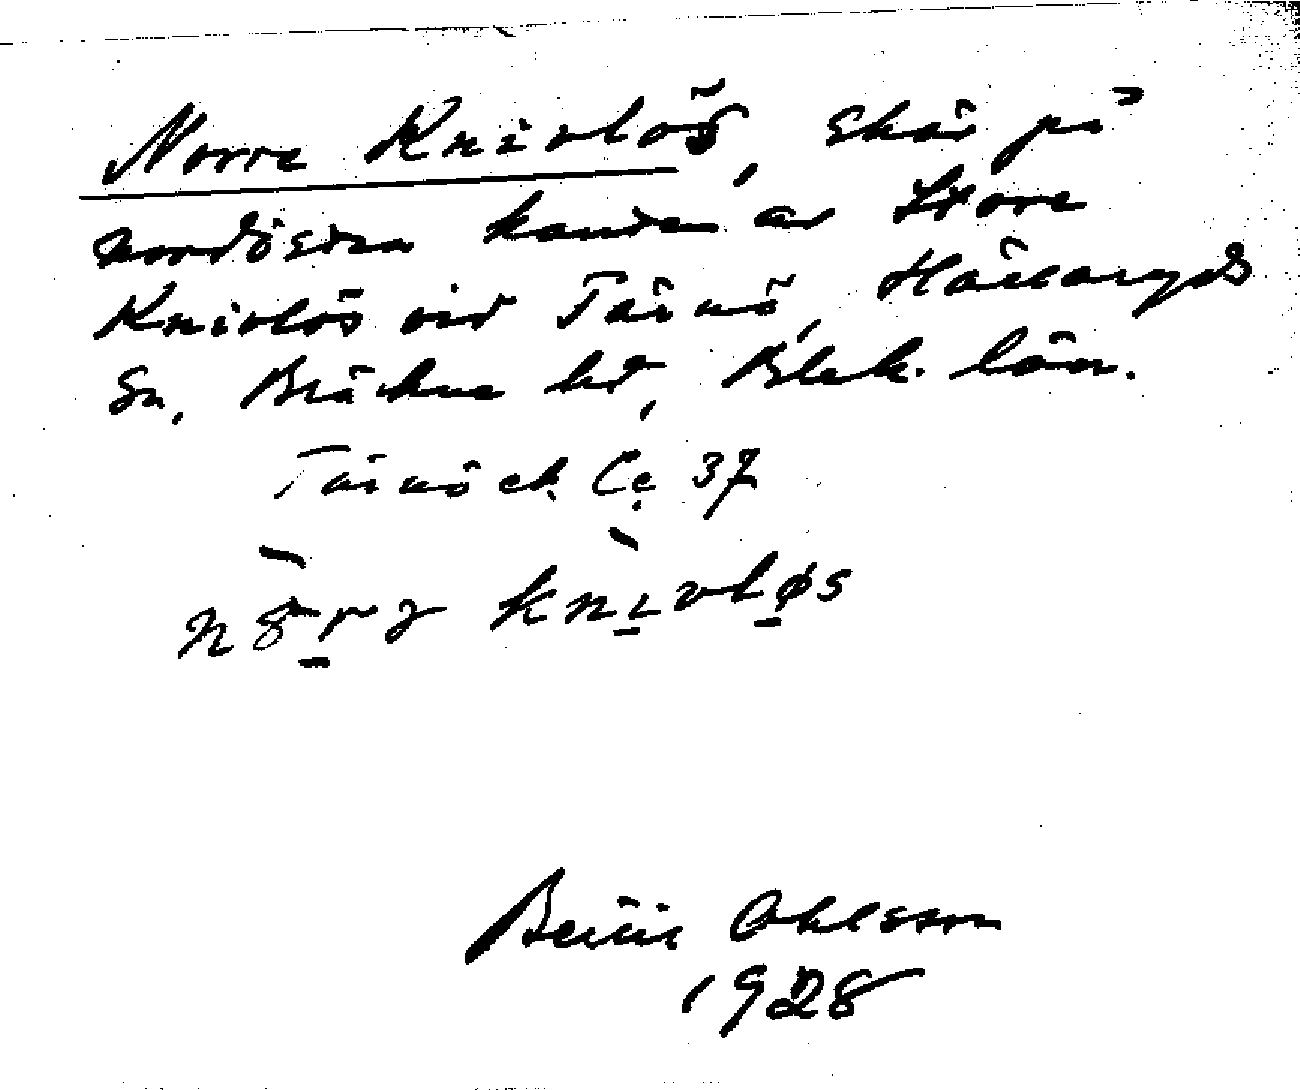 Norre Knivlös, skär på
nordöstra kanten av Store
Knivlös vid Tärnö, Hällaryds
sn, Bräkne hd, Blek. län.
Tärnö ek. C.c 37
knivløs
Bertil Ohlsson
1928